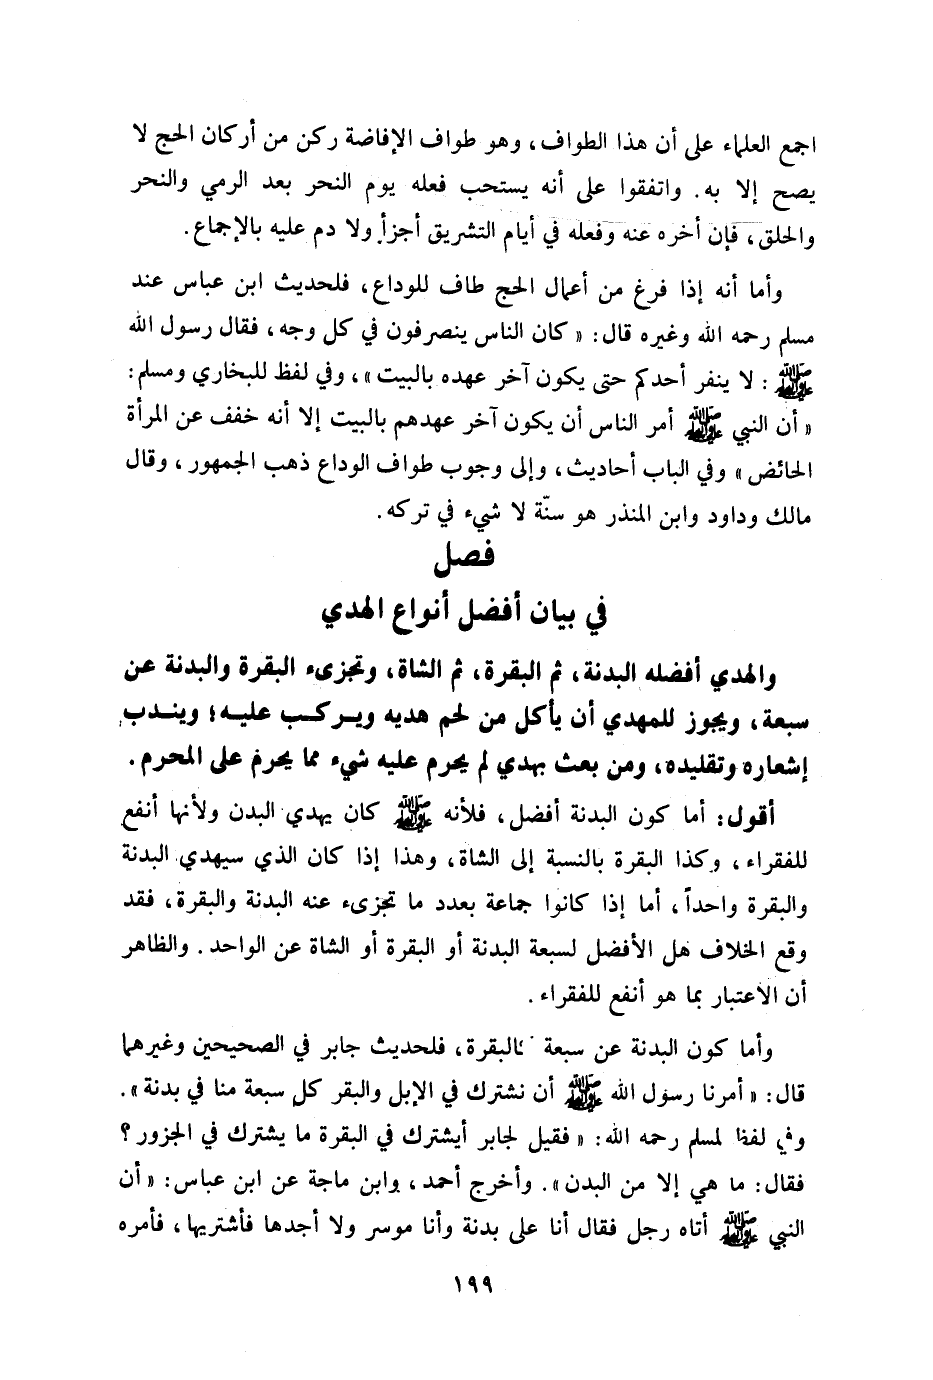 اجمع العلماء على أن هذا الطواف، وهو طواف الإفاضة ركن من أركان الحج لا
يصح إلا به. واتفقوا على أنه يستحب فعله يوم النحر بعد الرمي والنحر
والحلق، فإن أخره عنه وفعله في أيام التشريق أجزأ ولا دم عليه بالإجماع.
وأما أنه إذا فرغ من أعمال الحج طاف للوداع، فلحديث ابن عباس عند
مسلم رحمه الله وغيره قال: « كان الناس ينصرفون في كل وجه، فقال رسول الله
ﷺ : لا ينفر أحدكم حتى يكون آخر عهده بالبيت »، وفي لفظ للبخاري ومسلم:
« أن النبي ﷺ أمر الناس أن يكون آخر عهدهم بالبيت إلا أنه خفف عن المرأة
الحائض » وفي الباب أحاديث، وإلى وجوب طواف الوداع ذهب الجمهور، وقال
مالك وداود وابن المنذر هو سنّة لا شيء في تركه.
فصل
في بيان أفضل أنواع الهدي
والهدي أفضله البدنة، ثم البقرة، ثم الشاة، وتجزىء البقرة والبدنة عن
سبعة، ويجوز للمهدي أن يأكل من لحم هديه ويركب عليه؛ ويندب
إشعاره وتقليده، ومن بعث بهدي لم يحرم عليه شيء مما يحرم على المحرم.
أقول: أما كون البدنة أفضل، فلأنه ﷺ كان يهدي البدن ولأنها أنفع
للفقراء، وكذا البقرة بالنسبة إلى الشاة، وهذا إذا كان الذي سيهدي البدنة
والبقرة واحداً، أما إذا كانوا جماعة بعدد ما تجزىء عنه البدنة والبقرة، فقد
وقع الخلاف هل الأفضل لسبعة البدنة أو البقرة أو الشاة عن الواحد. والظاهر
أن الاعتبار بما هو أنفع للفقراء.
وأما كون البدنة عن سبعة كالبقرة، فلحديث جابر في الصحيحين وغيرهما
قال: « أمرنا رسول الله ﷺ أن نشترك في الإبل والبقر كل سبعة منا في بدنة ».
وفي لفظ لمسلم رحمه الله: « فقيل لجابر أيشترك في البقرة ما يشترك في الجزور؟
فقال: ما هي إلا من البدن ». وأخرج أحمد، وابن ماجة عن ابن عباس: « أن
النبي ﷺ أتاه رجل فقال أنا على بدنة وأنا موسر ولا أجدها فأشتريها، فأمره
١٩٩